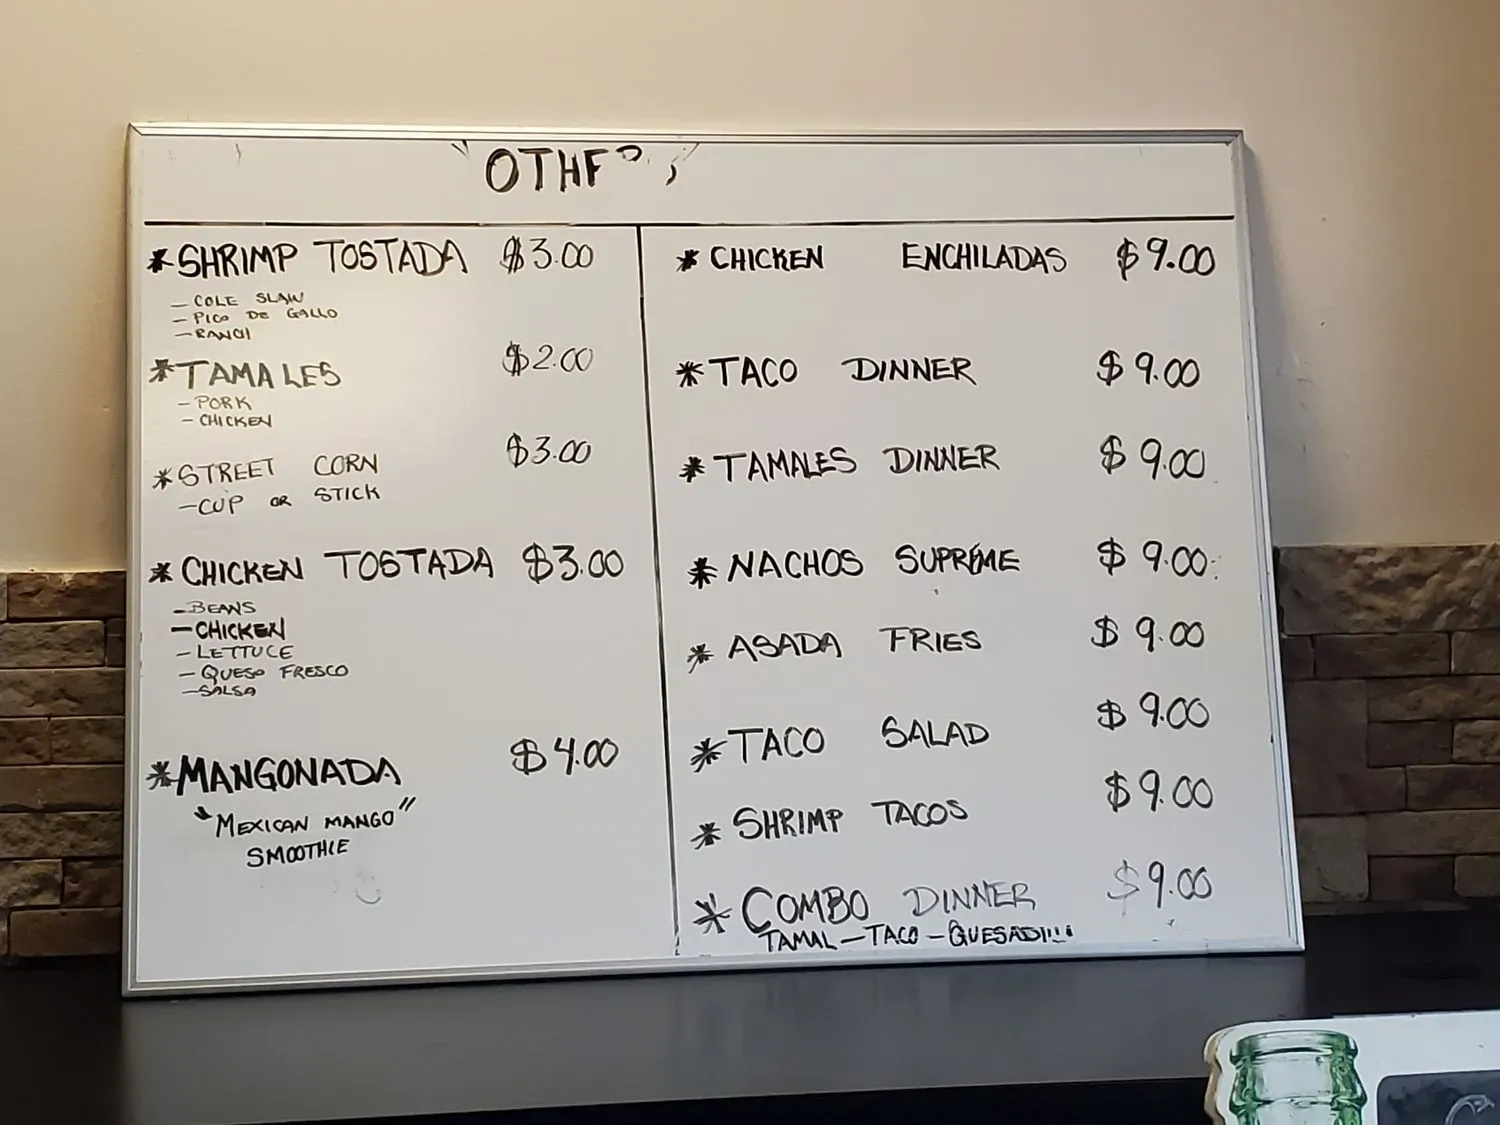 * SHRIMP TOSTADA $3.00
- COLE SLAW
- PICO DE GALLO
- RANCH
* TAMALES $2.00
- PORK
- CHICKEN
* STREET CORN $3.00
- CUP OR STICK
* CHICKEN TOSTADA $3.00
- BEANS
- CHICKEN
- LETTUCE
- QUESO FRESCO
- SALSA
* MANGONADA $4.00
"MEXICAN MANGO"
SMOOTHIE
* CHICKEN ENCHILADAS $9.00
* TACO DINNER $9.00
* TAMALES DINNER $9.00
* NACHOS SUPREME $9.00
* ASADA FRIES $9.00
* TACO SALAD $9.00
* SHRIMP TACOS $9.00
* COMBO DINNER $9.00
TAMAL - TACO -